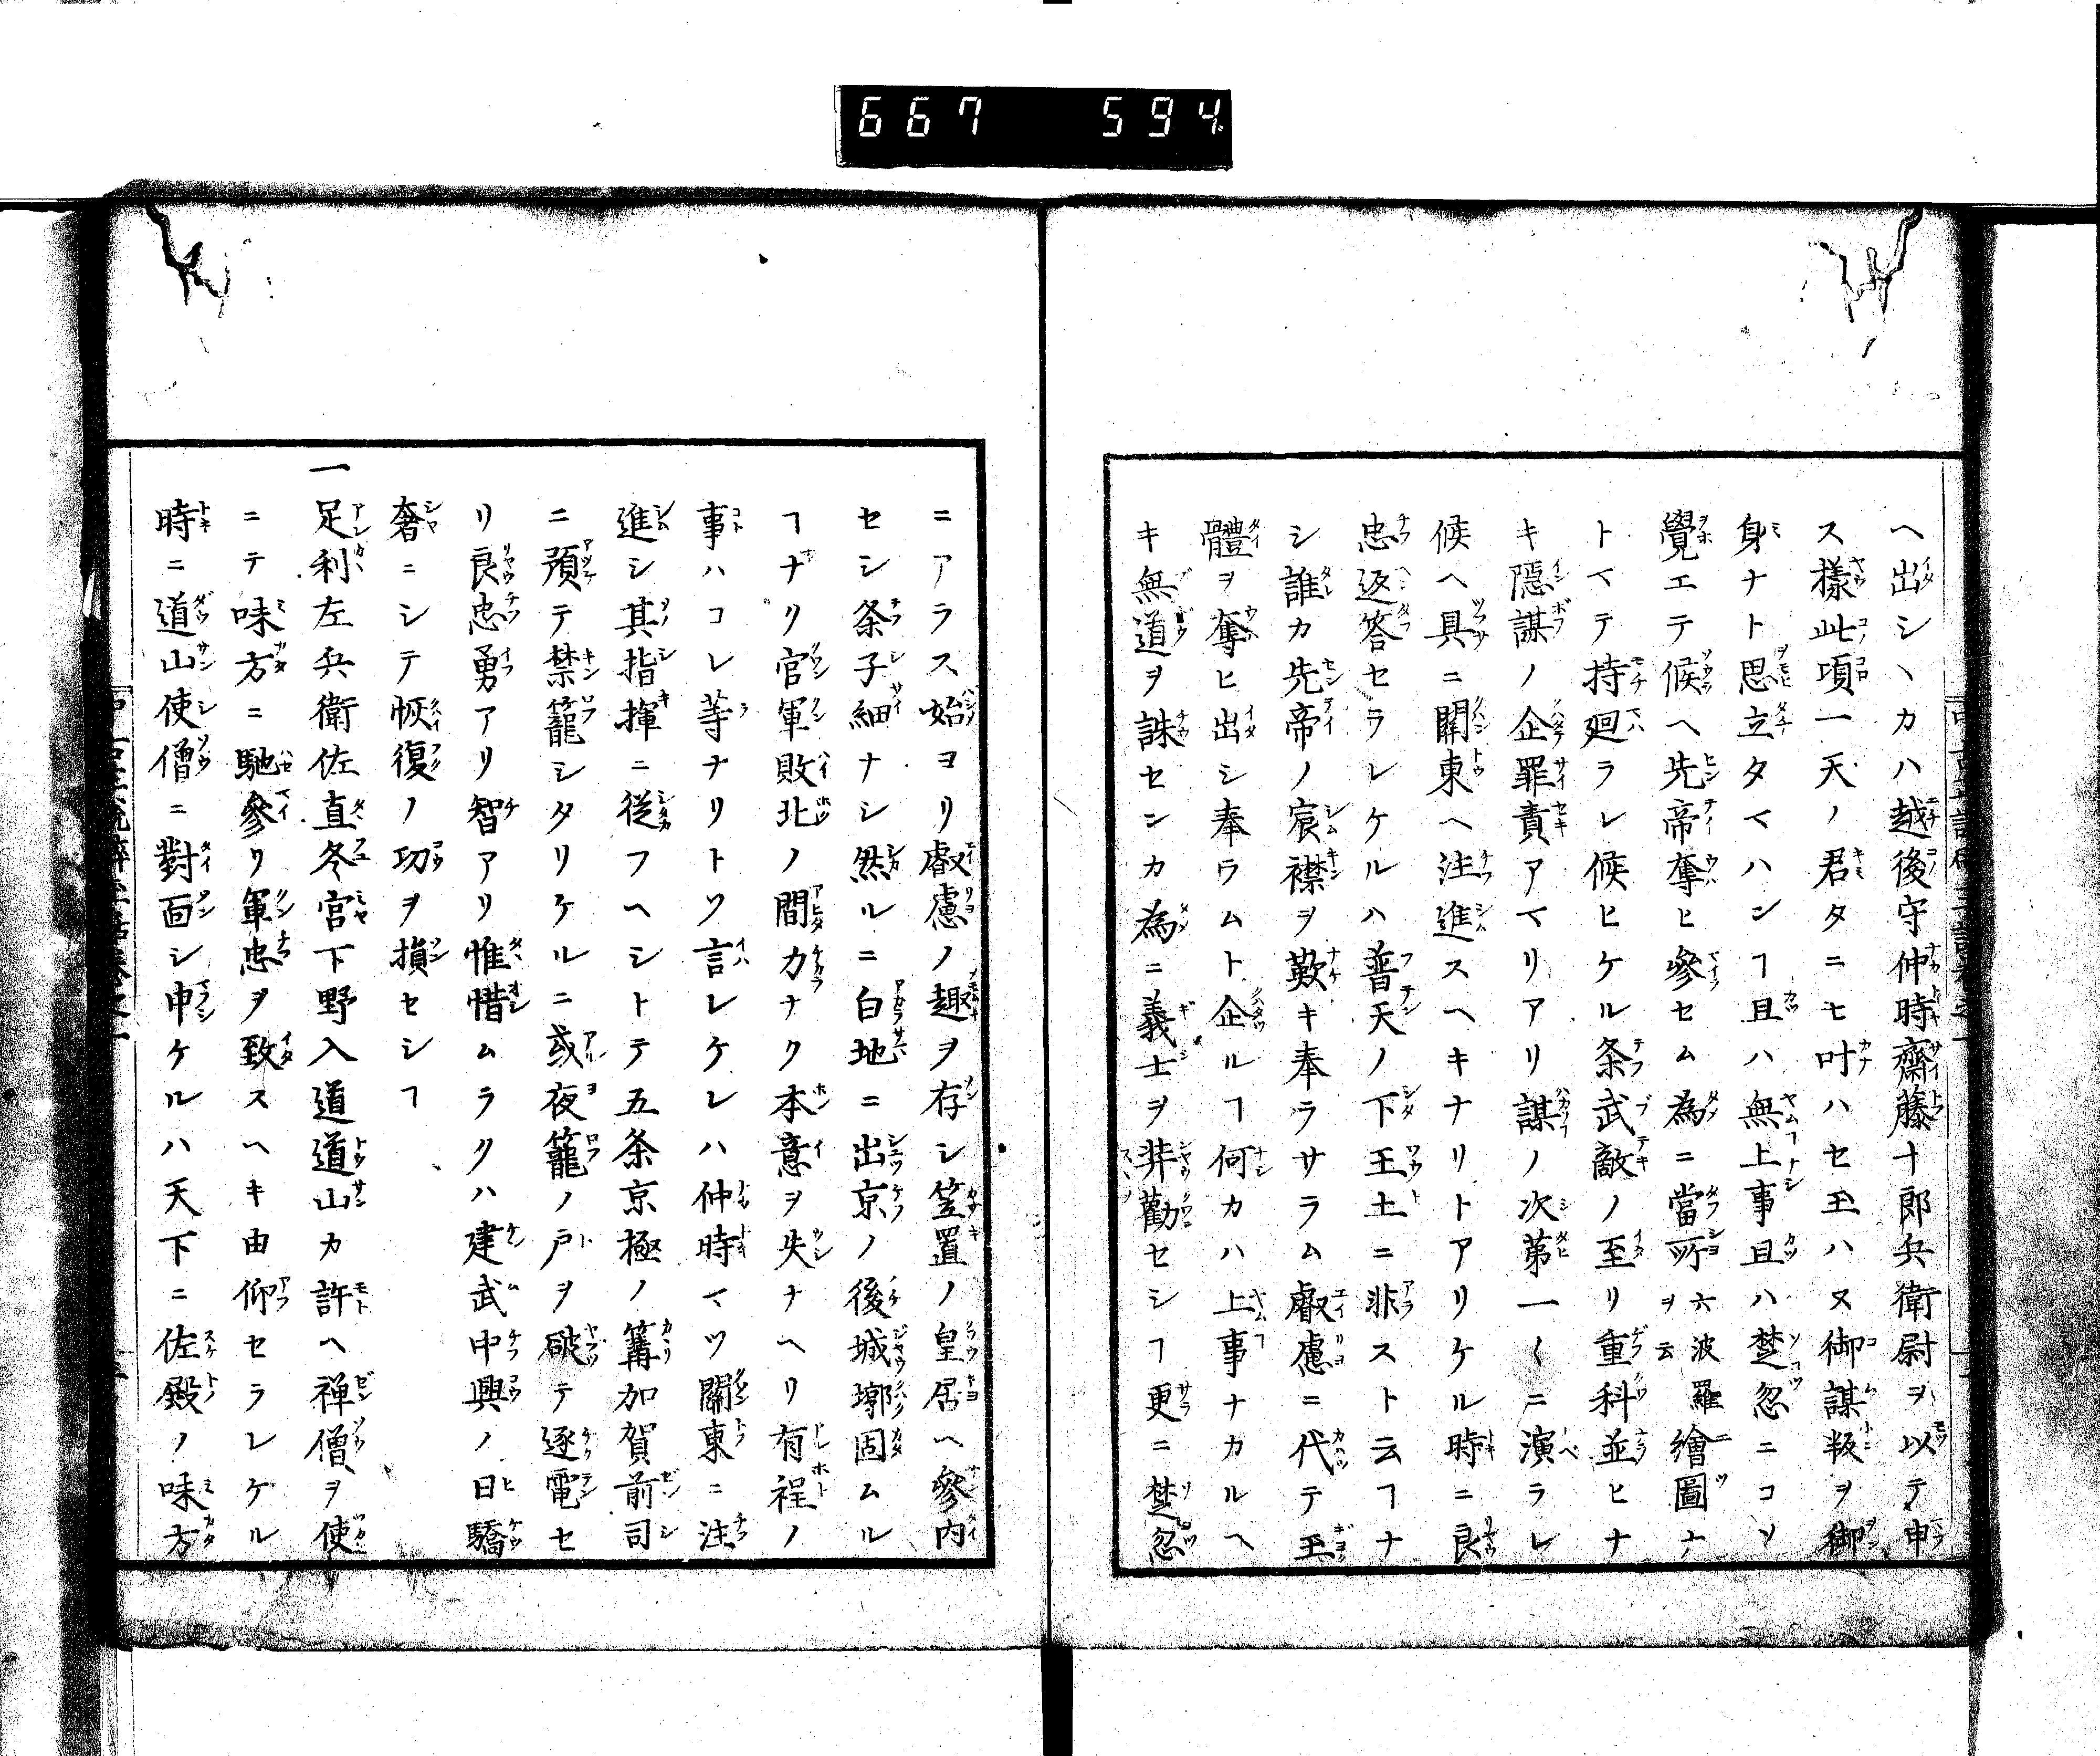 667 594
ヘ出シヽカハ越後守仲時齋藤十郎兵衛尉ヲ以テ申
ス樣此項一天ノ君タニモ叶ハセ玉ハヌ御謀叛ヲ御
身ナト思立タマハンヿ且ハ無上事且ハ楚忽ニコソ
覺エテ候ヘ先帝奪ヒ參セム為ニ當所六波羅ヲ云繪圖ナ
トマテ持廻ラレ候ヒケル条武敵ノ至リ重科並ヒナ
キ隱謀ノ企罪責アマリアリ謀ノ次第一〱ニ演ラレ
候ヘ具ニ關東ヘ注進スヘキナリトアリケル時ニ良
忠返答セラレケルハ普天ノ下王土ニ非ストヌヿナ
シ誰カ先帝ノ宸襟ヲ歎キ奉ラサラム叡慮ニ代テ玉
體ヲ奪ヒ出シ奉ラムト企ルヿ何カハ上事ナカルヘ
キ無道ヲ誅センカ為ニ義士ヲ非勸セシヿ更ニ楚忽
ニアラス始ヨリ叡慮ノ趣ヲ存シ笠置ノ皇居ヘ參内
セシ条子細ナシ然ルニ白地ニ出京ノ後城墎固ムル
ヿナリ官軍敗北ノ間力ナク本意ヲ失ナヘリ有程ノ
事ハコレ等ナリトソ言レケレハ仲時マツ關東ニ注
進シ其指揮ニ從フヘシトテ五条京極ノ篝加賀前司
ニ預テ禁籠シタリケルニ或夜籠ノ戸ヲ破テ逐電セ
リ良忠勇アリ智アリ惟惜ムラクハ建武中興ノ日驕
奢ニシテ恢復ノ功ヲ損セシヿ
一足利左兵衛佐直冬宮下野入道道山カ許ヘ禅僧ヲ使
ニテ味方ニ馳參リ軍忠ヲ致スヘキ由仰セラレケル
時ニ道山使僧ニ對面シ申ケルハ天下ニ佐殿ノ味方